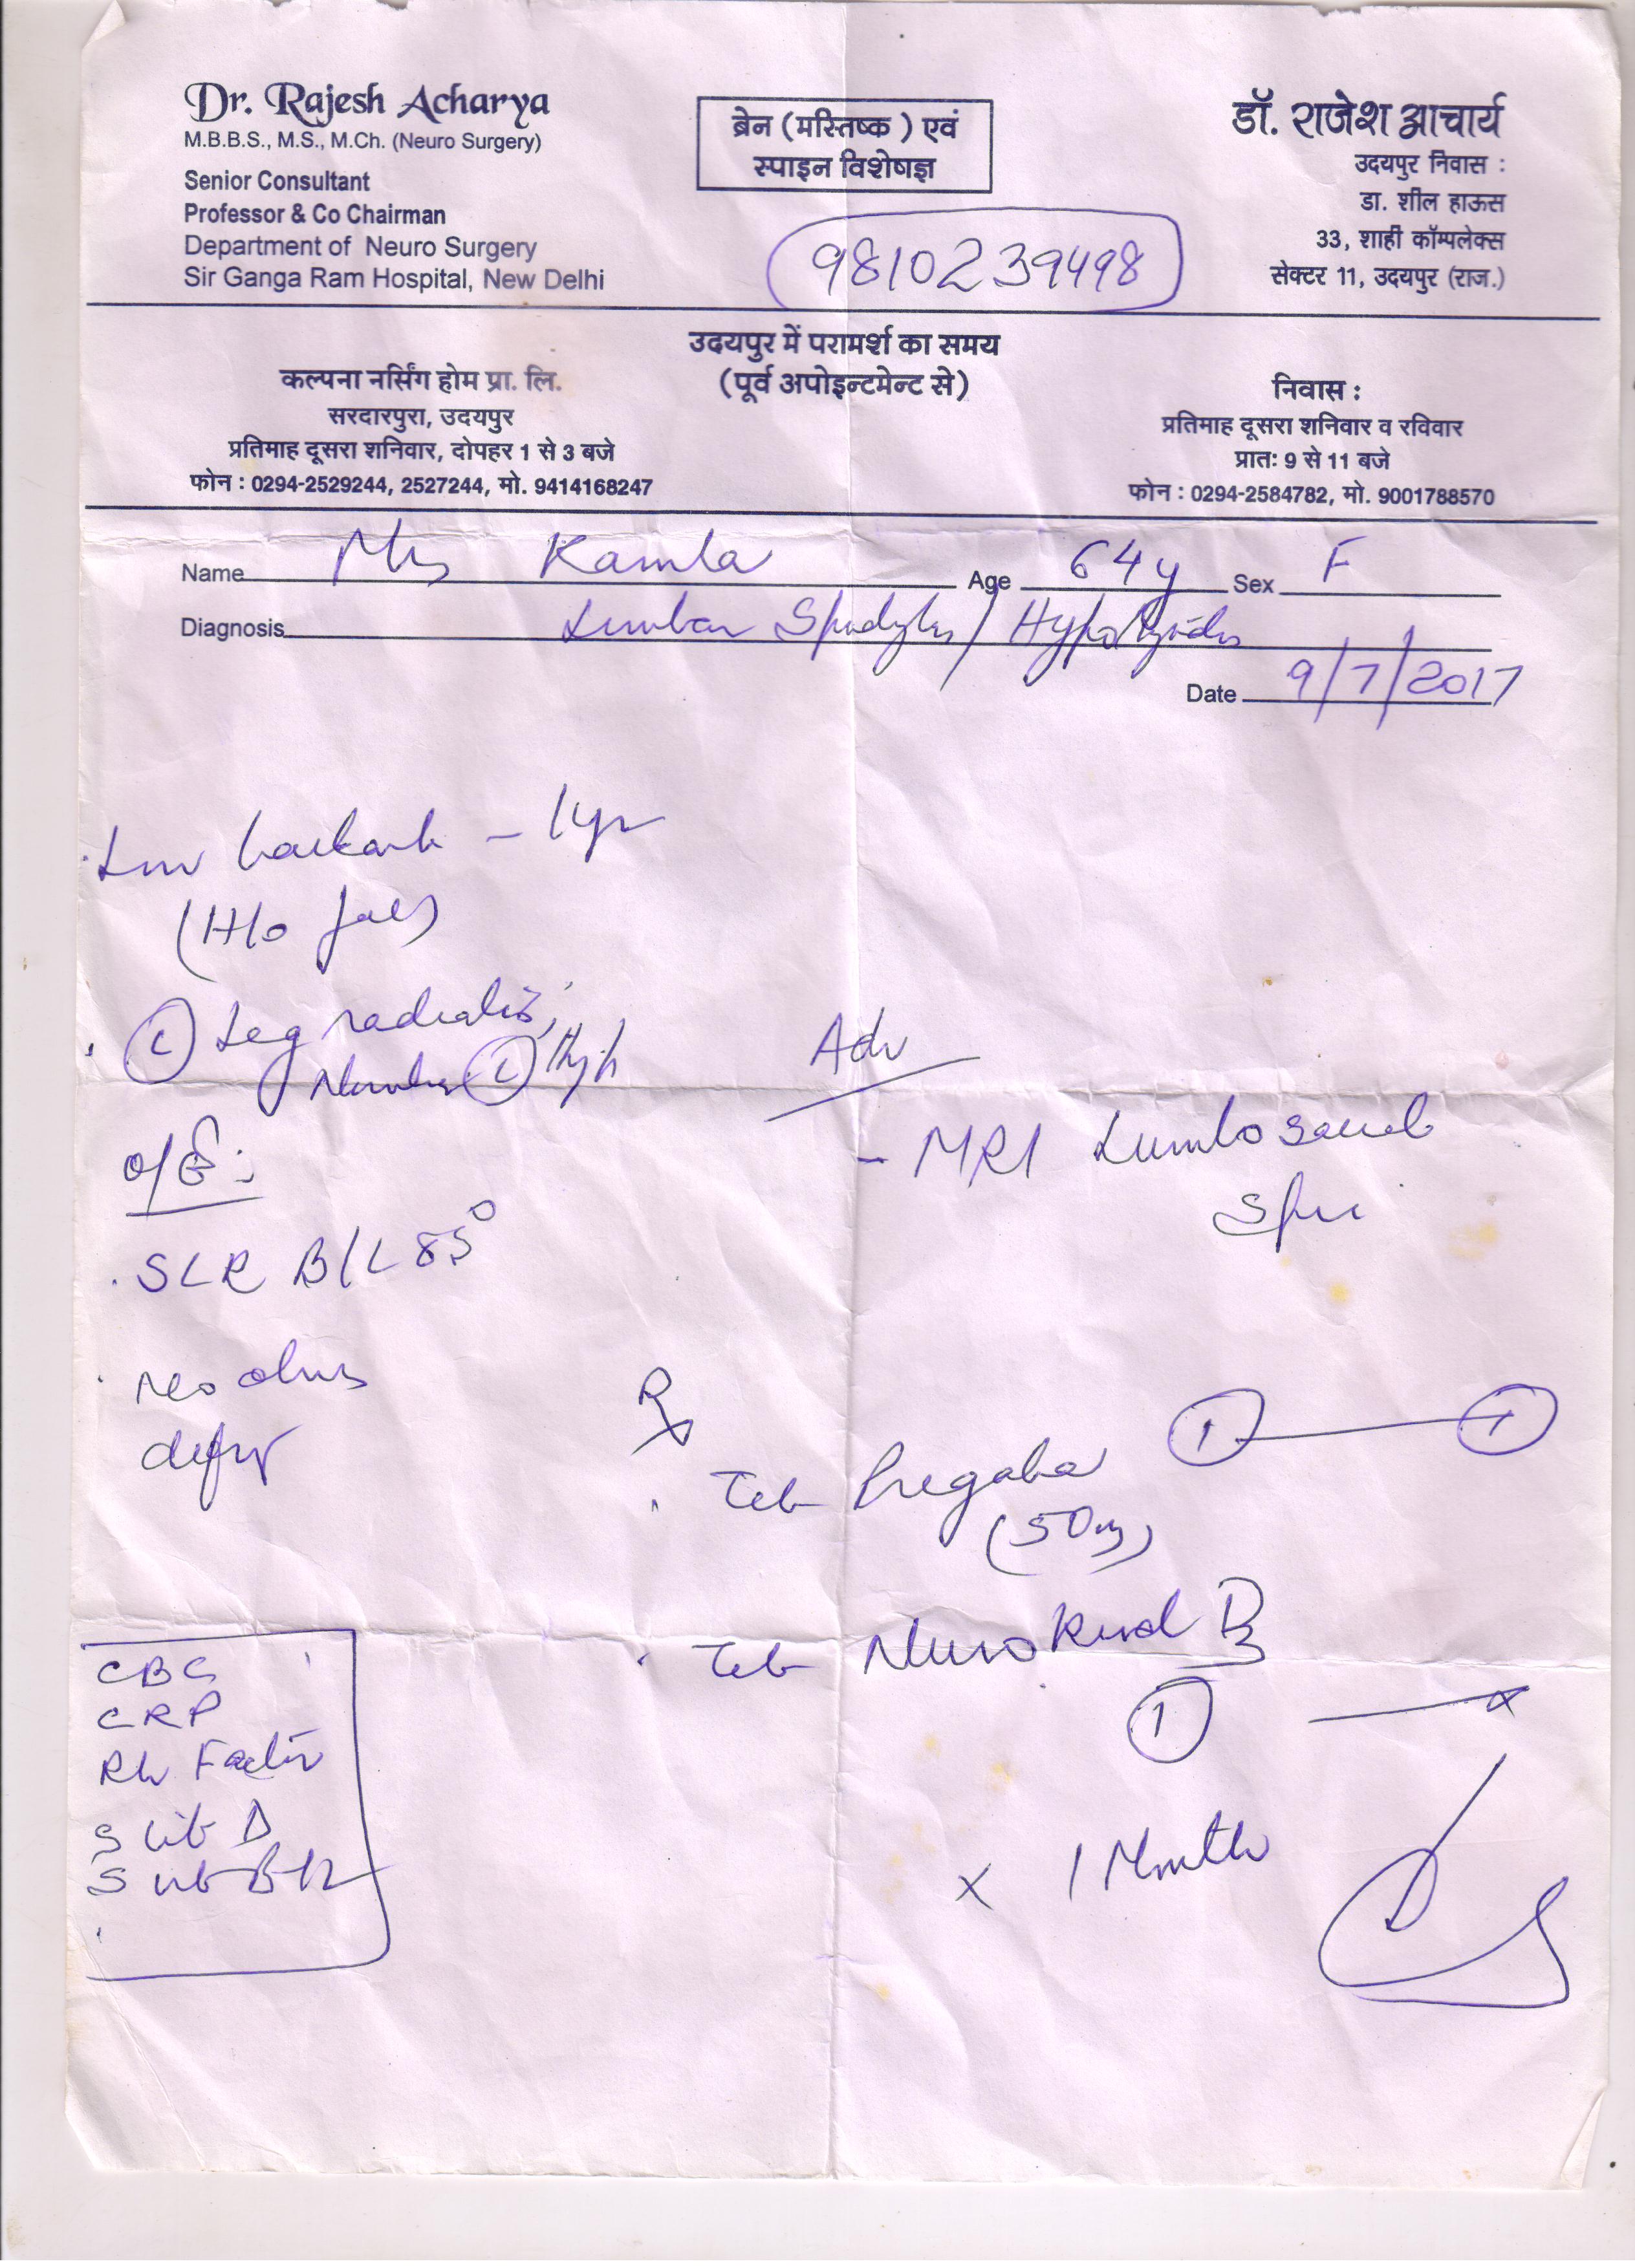 Dr. Rajesh Acharya
M.B.B.S., M.S., M.Ch. (Neuro Surgery)
Senior Consultant
Professor & Co Chairman
Department of Neuro Surgery
Sir Ganga Ram Hospital, New Delhi
ब्रेन (मस्तिष्क) एवं
स्पाइन विशेषज्ञ
9810239498
डॉ. राजेश आचार्य
उदयपुर निवास :
डा. शील हाऊस
33, शाही कॉम्पलेक्स
सेक्टर 11, उदयपुर (राज.)
उदयपुर में परामर्श का समय
(पूर्व अपोइन्टमेन्ट से)
कल्पना नर्सिंग होम प्रा. लि.
सरदारपुरा, उदयपुर
प्रतिमाह दूसरा शनिवार, दोपहर 1 से 3 बजे
फोन : 0294-2529244, 2527244, मो. 9414168247
निवास :
प्रतिमाह दूसरा शनिवार व रविवार
प्रातः 9 से 11 बजे
फोन : 0294-2584782, मो. 9001788570
Name Mrs Kamla Age 64y Sex F
Diagnosis Lumbar /
Date 9/7/2017
Low backache - 1yr
(H/o fall)
(L) Leg radiation,
Numbness (L) thigh
O/E:
SLR B/L 85°
no
Adv
- MRI Lumbosacral
Spine
Rx
Tab Pregaba 1 — 1
(50mg)
Tab Neurokind
1 — x
x 1 Month
CBC
CRP
Rh Factor
S Vit D
S Vit B12